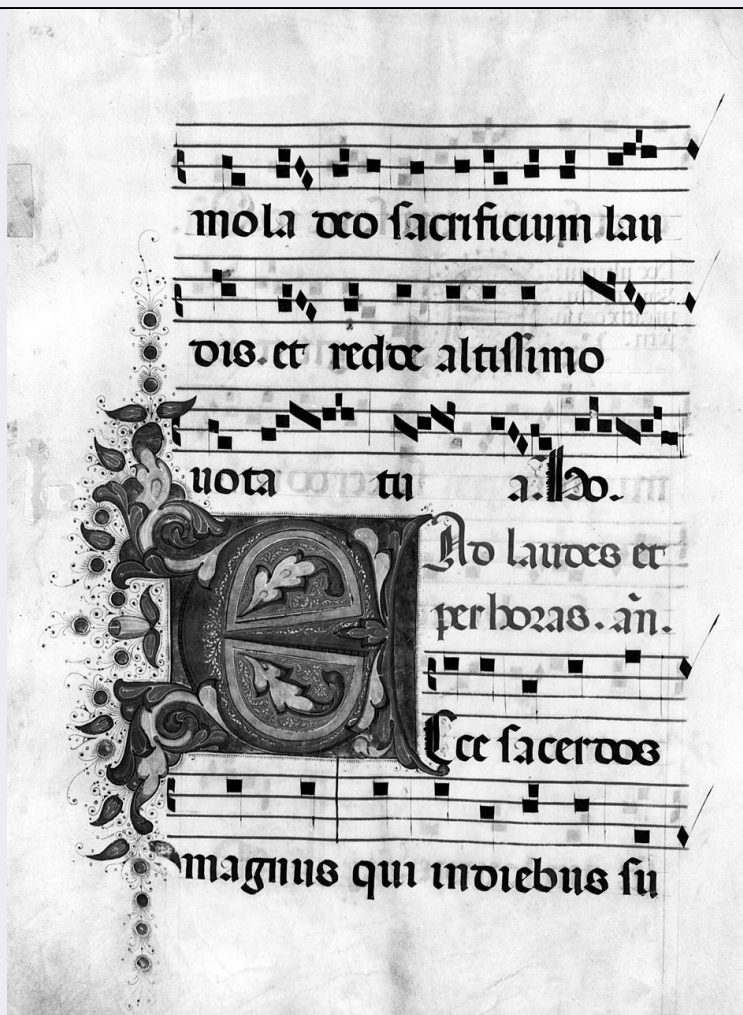 mola deo sacrificium lau
dis. et redde altissimo
uota tu a. Ado.
Ad laudes et
per horas. an̄.
Ecce sacerdos
magnus qui indiebus su